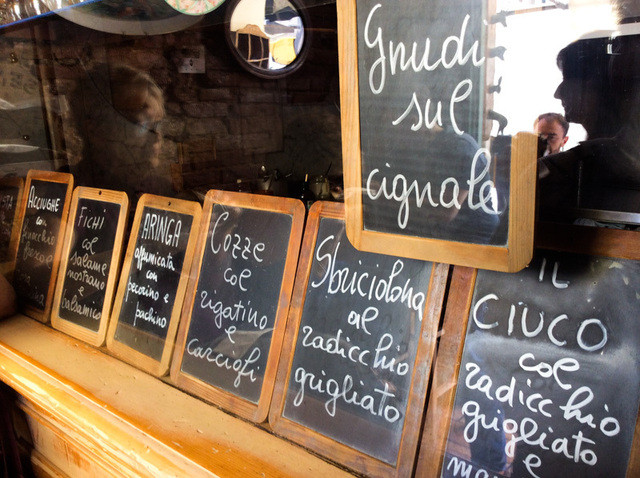 Gnudi
sul
cignale
ACCIUGHE
con
finocchio
FICHI
col
salame
nostrano
e
balsamico
ARINGA
affumicata
con
pecorino e
pachino
Cozze
col
rigatino
e
carciofi
Sbriciolona
al
radicchio
grigliato
IL
CIUCO
col
radicchio
grigliato
e